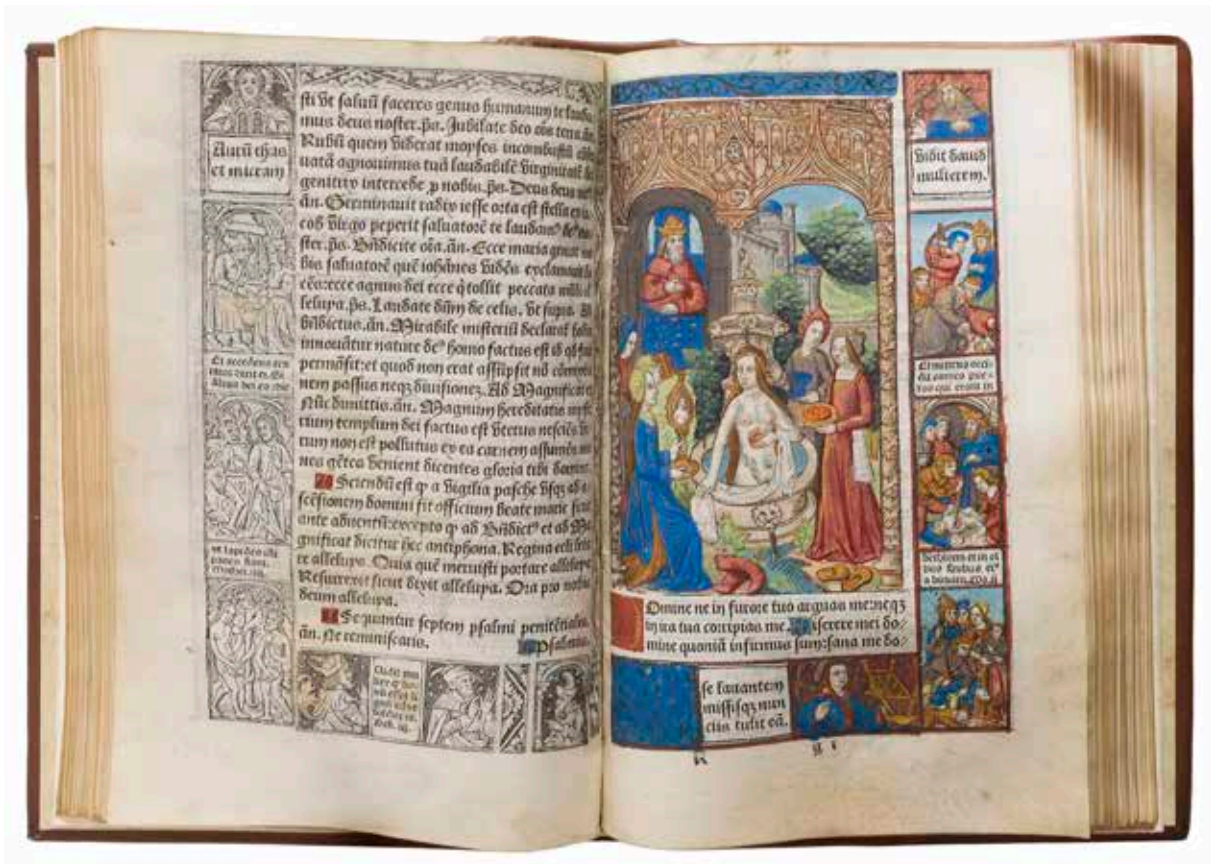 Aurū thus
et mirram
Et accedens ten
sti vt saluū faceres genus humanum te lauda
mus deus noster. ps. Jubilate deo oīs terra. ān.
Rubū quem viderat moyses incombustū
uatā agnouimus tuā laudabilē virginitatē
genitrix intercede p nobis. ps. Deus deus
ān. Germinauit radix iesse orta est stella
cob virgo peperit saluatorē te laudam⁹ de⁹
ster. ps. Bn̄dicite oīa. ān. Ecce maria genuit
bis saluatorē quē iohānes vidēs exclamauit
cēs: ecce agnus dei ecce q̄ tollit peccata mūdi
leluya. ps. Laudate dn̄m de celis. vt supra. Ad
bn̄dictus. ān. Mirabile misteriū declarat
innouātur nature de⁹ homo factus est id qd
permāsit: et quod non erat assūpsit nō
nem passus neqz diuisionez. Ad Magnificat
Nūc dimittis. ān. Magnum hereditatis
rium templum dei factus est vterus nesciēs
rum non est pollutus ex ea carnem assumēs
nes gētes venient dicentes gloria tibi domine.
Sciendū est q a vigilia pasche vsqz ad
scēsionem domini fit officium beate marie sicut
ante aduentū: excepto q ad Bn̄dict⁹ et ad Ma
gnificat dicitur hec antiphona. Regina celi
re alleluya. Quia quē meruisti portare alleluya
Resurrexit sicut dixit alleluya. Ora pro nobis
deum alleluya.
Sequuntur septem psalmi penitētiales.
ān. Ne reminiscaris. Psalmus.
Vidit dauid
mulierem.
Domine ne in furore tuo arguas me: neqz
in ira tua corripias me. Miserere mei do/
mine quoniā infirmus sum: sana me do/
se lauantem
missisqz nun
ciis tulit eā.